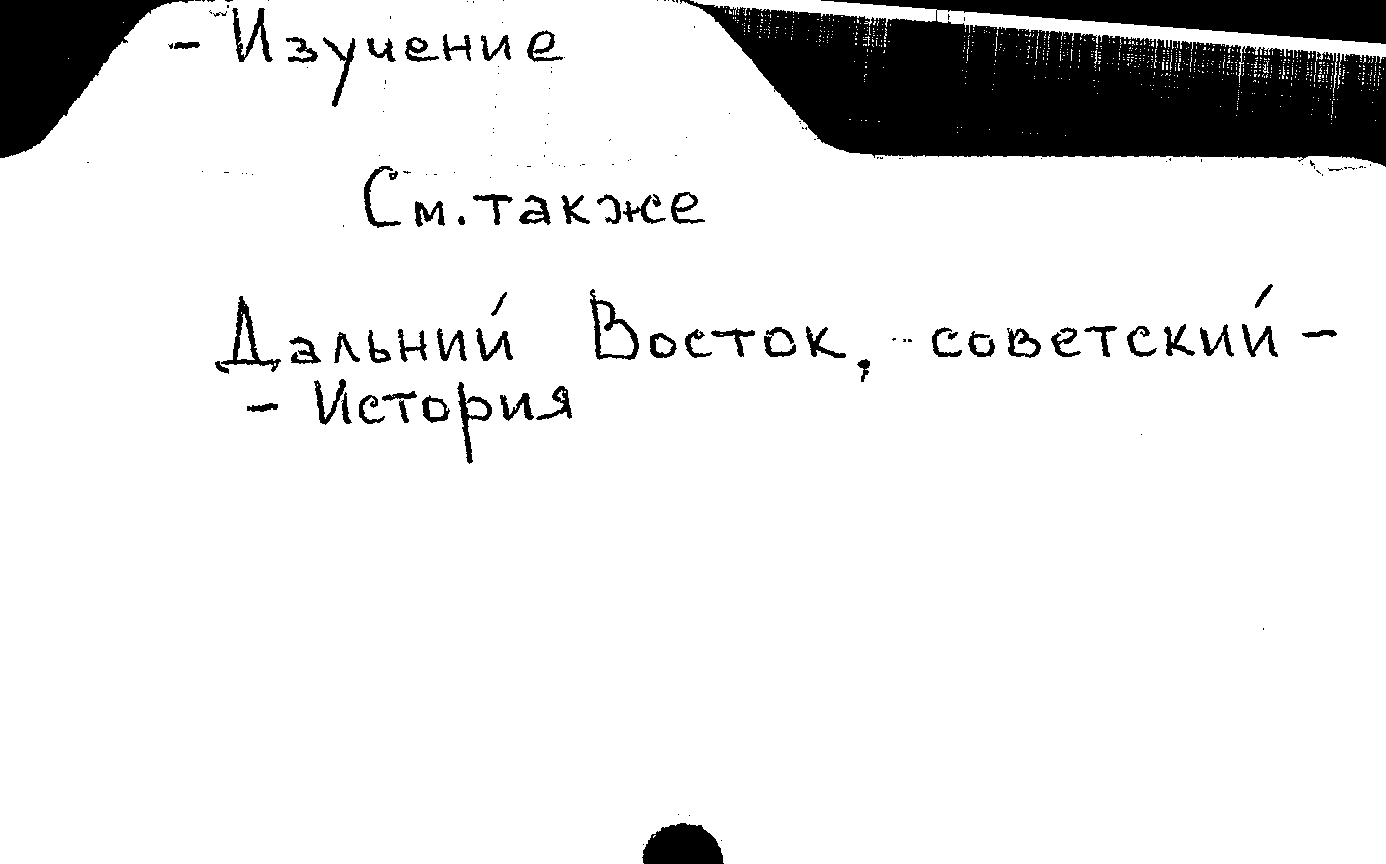 - Изучение
См. также
Дальний Восток, советский -
- История